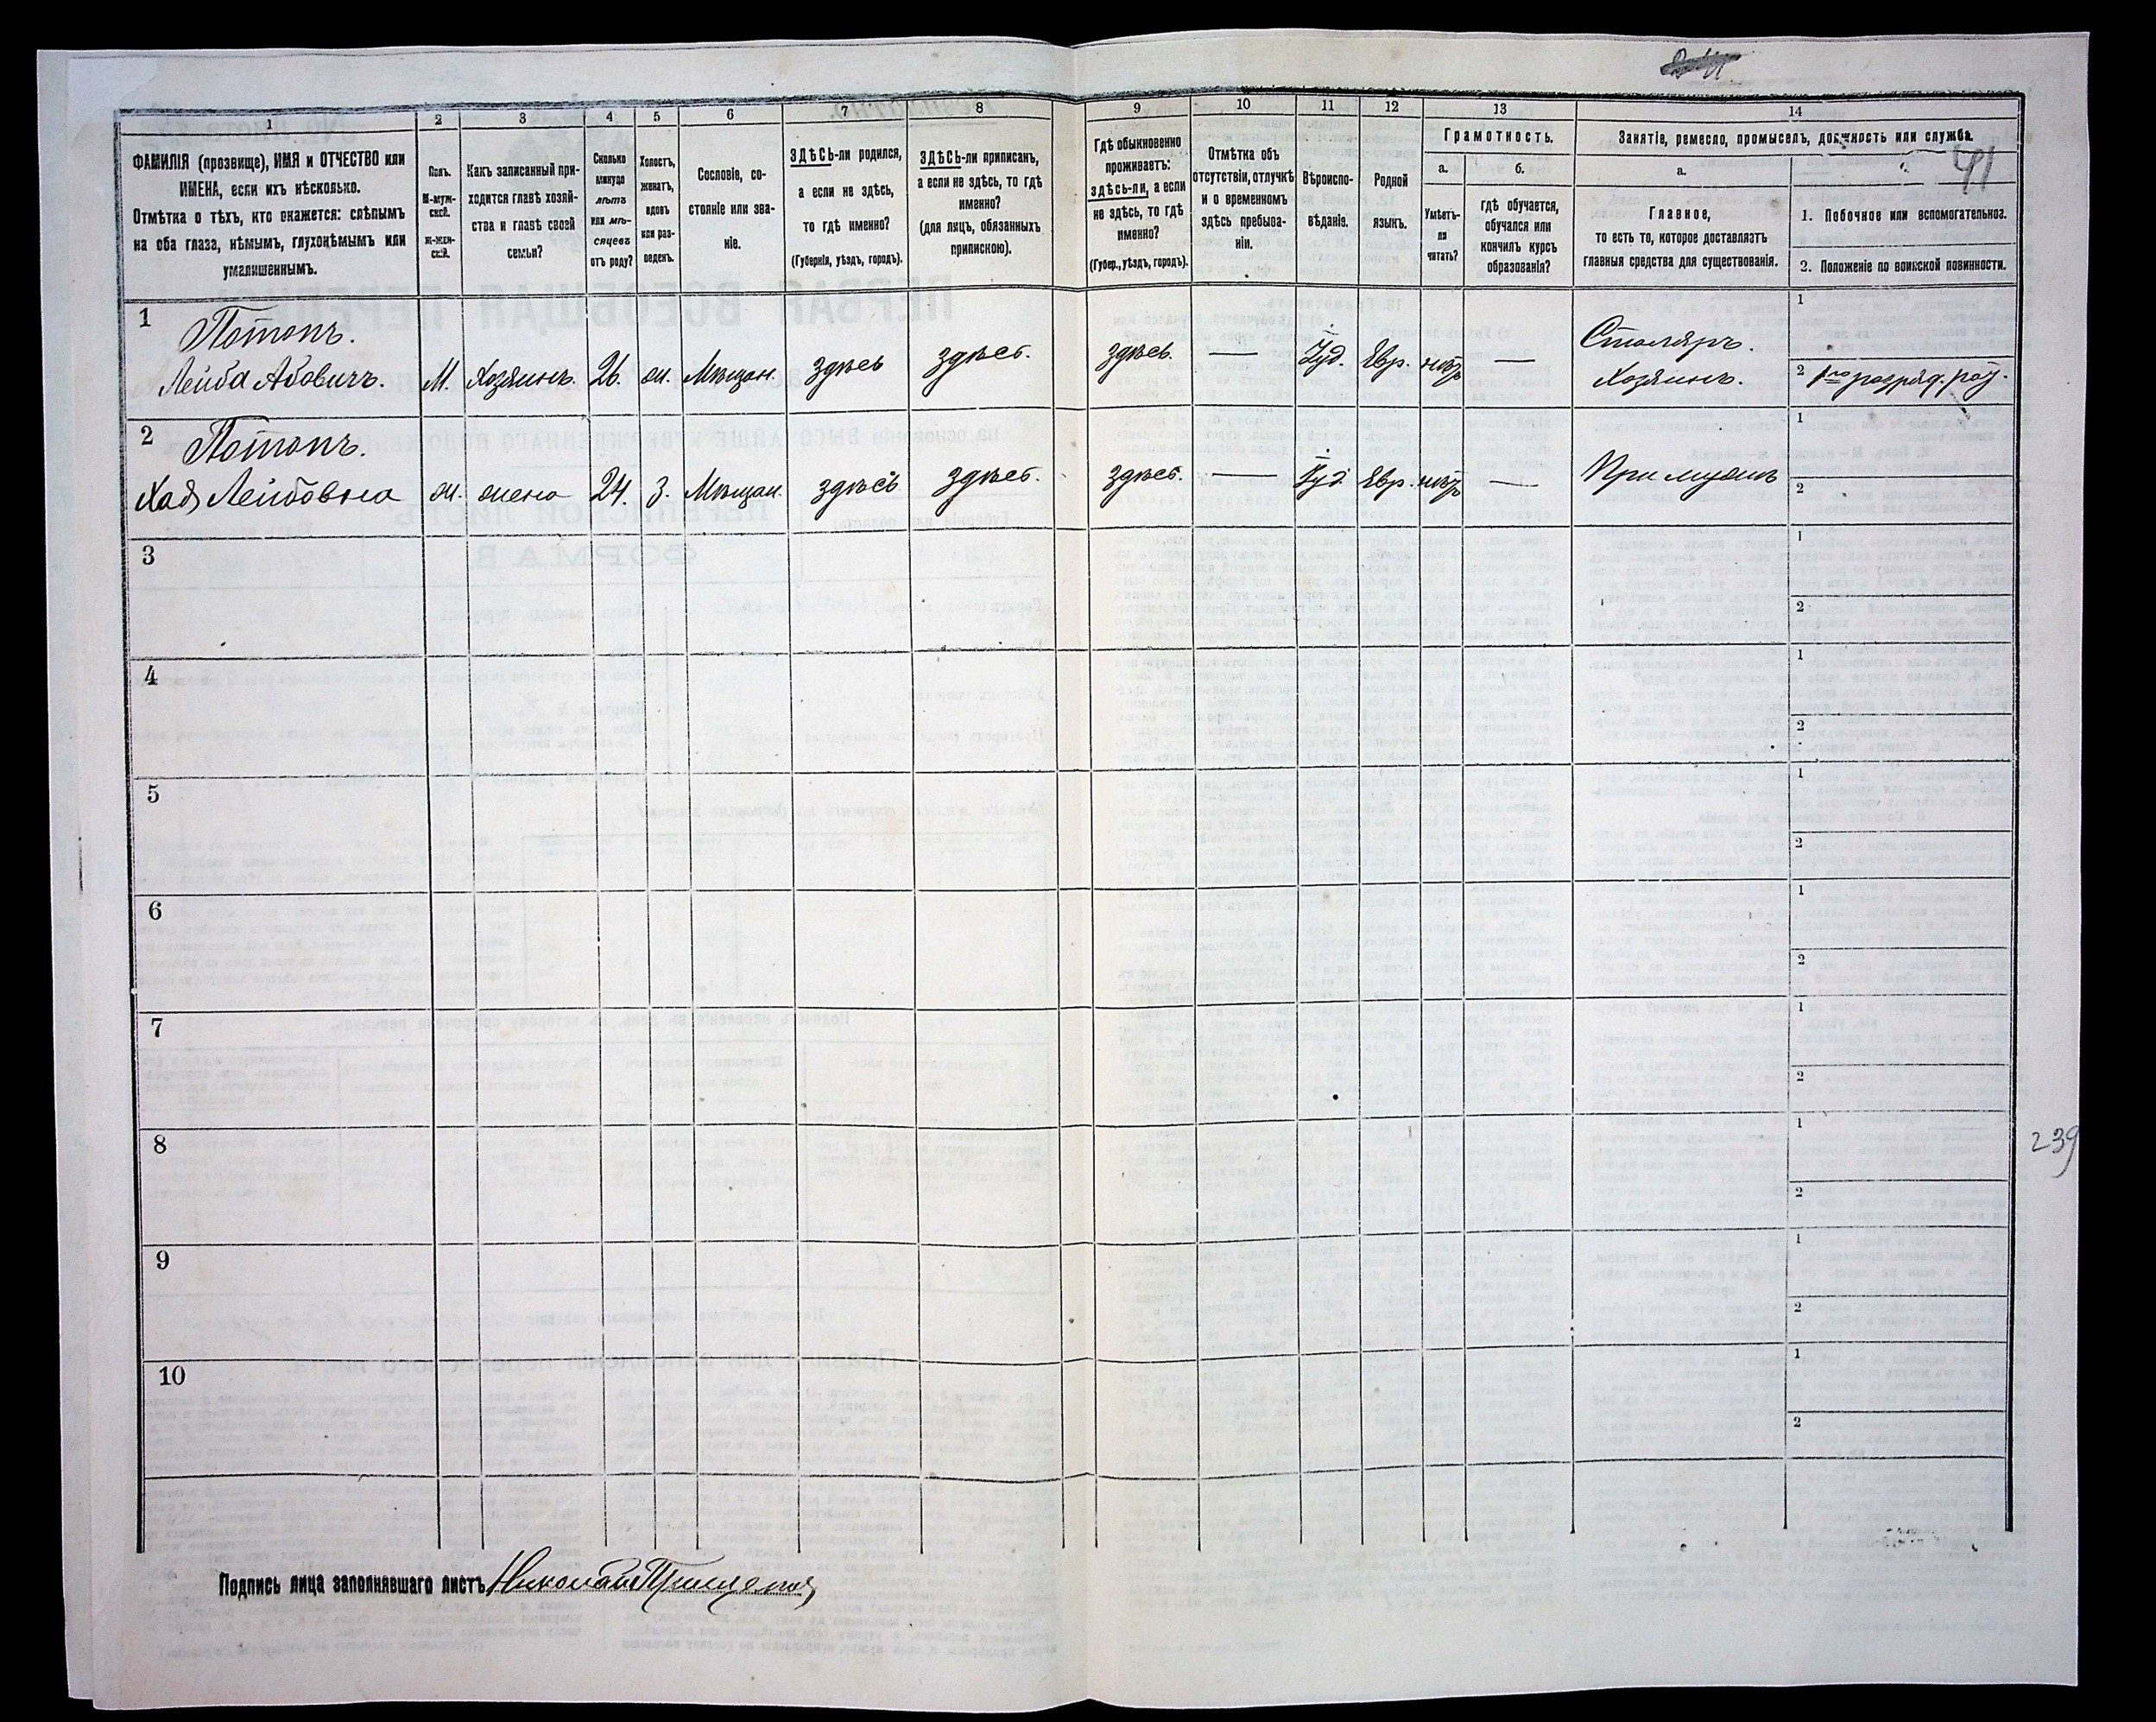 1
2
3
4
5
6
7
8
9
10
11
12
13
14
ФАМИЛІЯ (прозвище), ИМЯ и ОТЧЕСТВО или
ИМЕНА, если ихъ нѣсколько.
Отмѣтка о тѣхъ, кто окажется: слѣпымъ
на оба глаза, нѣмымъ, глухонѣмымъ или
умалишеннымъ.
Полъ.
М-муж-
ской.
ж-жен-
скій.
Какъ записанный при-
ходится главѣ хозяй-
ства и главѣ своей
семьи?
Сколько
минуло
лѣтъ
или мѣ-
сяцевъ
отъ роду?
Холостъ,
женатъ,
вдовъ
или раз-
веденъ.
Сословіе, со-
стояніе или зва-
ніе.
ЗДѢСЬ-ли родился,
а если не здѣсь,
то гдѣ именно?
(Губернія, уѣздъ, городъ).
ЗДѢСЬ-ли приписанъ,
а если не здѣсь, то гдѣ
именно?
(для лицъ, обязанныхъ
припискою).
Гдѣ обыкновенно
проживаетъ:
здѣсь-ли, а если
не здѣсь, то гдѣ
именно?
(Губер., уѣздъ, городъ).
Отмѣтка объ
отсутствіи, отлучкѣ
и о временномъ
здѣсь пребыва-
ніи.
Вѣроиспо-
вѣданіе.
Родной
языкъ.
Грамотность.
а.
б.
Умѣетъ-
ли
читать?
гдѣ обучается,
обучался или
кончилъ курсъ
образованія?
Занятіе, ремесло, промыселъ, должность или служба.
а.
Главное,
то есть то, которое доставляетъ
главныя средства для существованія.
41
1. Побочное или вспомогательное.
2. Положеніе по воинской повинности.
1
Потопъ.
Лейба Абовичъ.
М.
Хозяинъ.
26.
ж.
Мѣщан.
здѣсь
здѣсь.
здѣсь.
—
Іуд.
Евр.
нѣтъ
—
Столяръ.
Хозяинъ.
1
2 1го разряд. рат.
2
Потопъ.
Хая Лейбовна
ж.
жена
24.
З.
Мѣщан.
здѣсь
здѣсь.
здѣсь.
—
Іуд.
Евр.
нѣтъ
—
При мужѣ
1
2
3
1
2
4
1
2
5
1
2
6
1
2
7
1
2
8
1
2
239
9
1
2
10
1
2
Подпись лица заполнявшаго листъ Николай